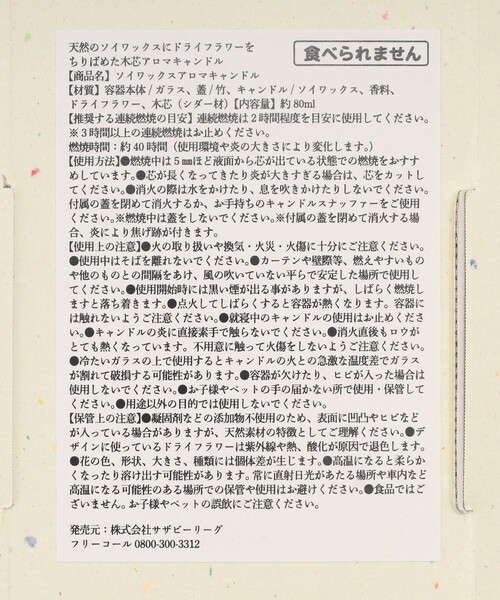 天然のソイワックスにドライフラワーを
ちりばめた木芯アロマキャンドル
食べられません
【商品名】ソイワックスアロマキャンドル
【材質】容器本体/ガラス、蓋/竹、キャンドル/ソイワックス、香料、
ドライフラワー、木芯（シダー材）【内容量】約80ml
【推奨する連続燃焼の目安】連続燃焼は2時間程度を目安に使用してください。
※3時間以上の連続燃焼はお止めください。
燃焼時間：約40時間（使用環境や炎の大きさにより変化します。）
【使用方法】●燃焼中は5㎜ほど液面から芯が出ている状態での燃焼をおすす
めしています。●芯が長くなってきたり炎が大きすぎる場合は、芯をカットし
てください。●消火の際は水をかけたり、息を吹きかけたりしないでください。
付属の蓋を閉めて消火するか、お手持ちのキャンドルスナッファーをご使用
ください。※燃焼中は蓋をしないでください。※付属の蓋を閉めて消火する場
合、炎により焦げ跡が付きます。
【使用上の注意】●火の取り扱いや換気・火災・火傷に十分にご注意ください。
●使用中はそばを離れないでください。●カーテンや壁際等、燃えやすいもの
や他のものとの間隔をあけ、風の吹いていない平らで安定した場所で使用し
てください。●使用開始時には黒い煙が出る事がありますが、しばらく燃焼し
ますと落ち着きます。●点火してしばらくすると容器が熱くなります。容器に
は触れないようご注意ください。●就寝中のキャンドルの使用はお止めくださ
い。●キャンドルの炎に直接素手で触らないでください。●消火直後もロウが
とても熱くなっています。不用意に触って火傷をしないようご注意ください。
●冷たいガラスの上で使用するとキャンドルの火との急激な温度差でガラス
が割れて破損する可能性があります。●容器が欠けたり、ヒビが入った場合は
使用しないでください。●お子様やペットの手の届かない所で使用・保管して
ください。●用途以外の目的では使用しないでください。
【保管上の注意】●凝固剤などの添加物不使用のため、表面に凹凸やヒビなど
が入っている場合がありますが、天然素材の特徴としてご理解ください。●デ
ザインに使っているドライフラワーは紫外線や熱、酸化が原因で退色します。
●花の色、形状、大きさ、種類には個体差が生じます。●高温になると柔らか
くなったり溶け出す可能性があります。常に直射日光があたる場所や車内など
高温になる可能性のある場所での保管や使用はお避けください。●食品ではご
ざいません。お子様やペットの誤飲にご注意ください。
発売元：株式会社サザビーリーグ
フリーコール 0800-300-3312